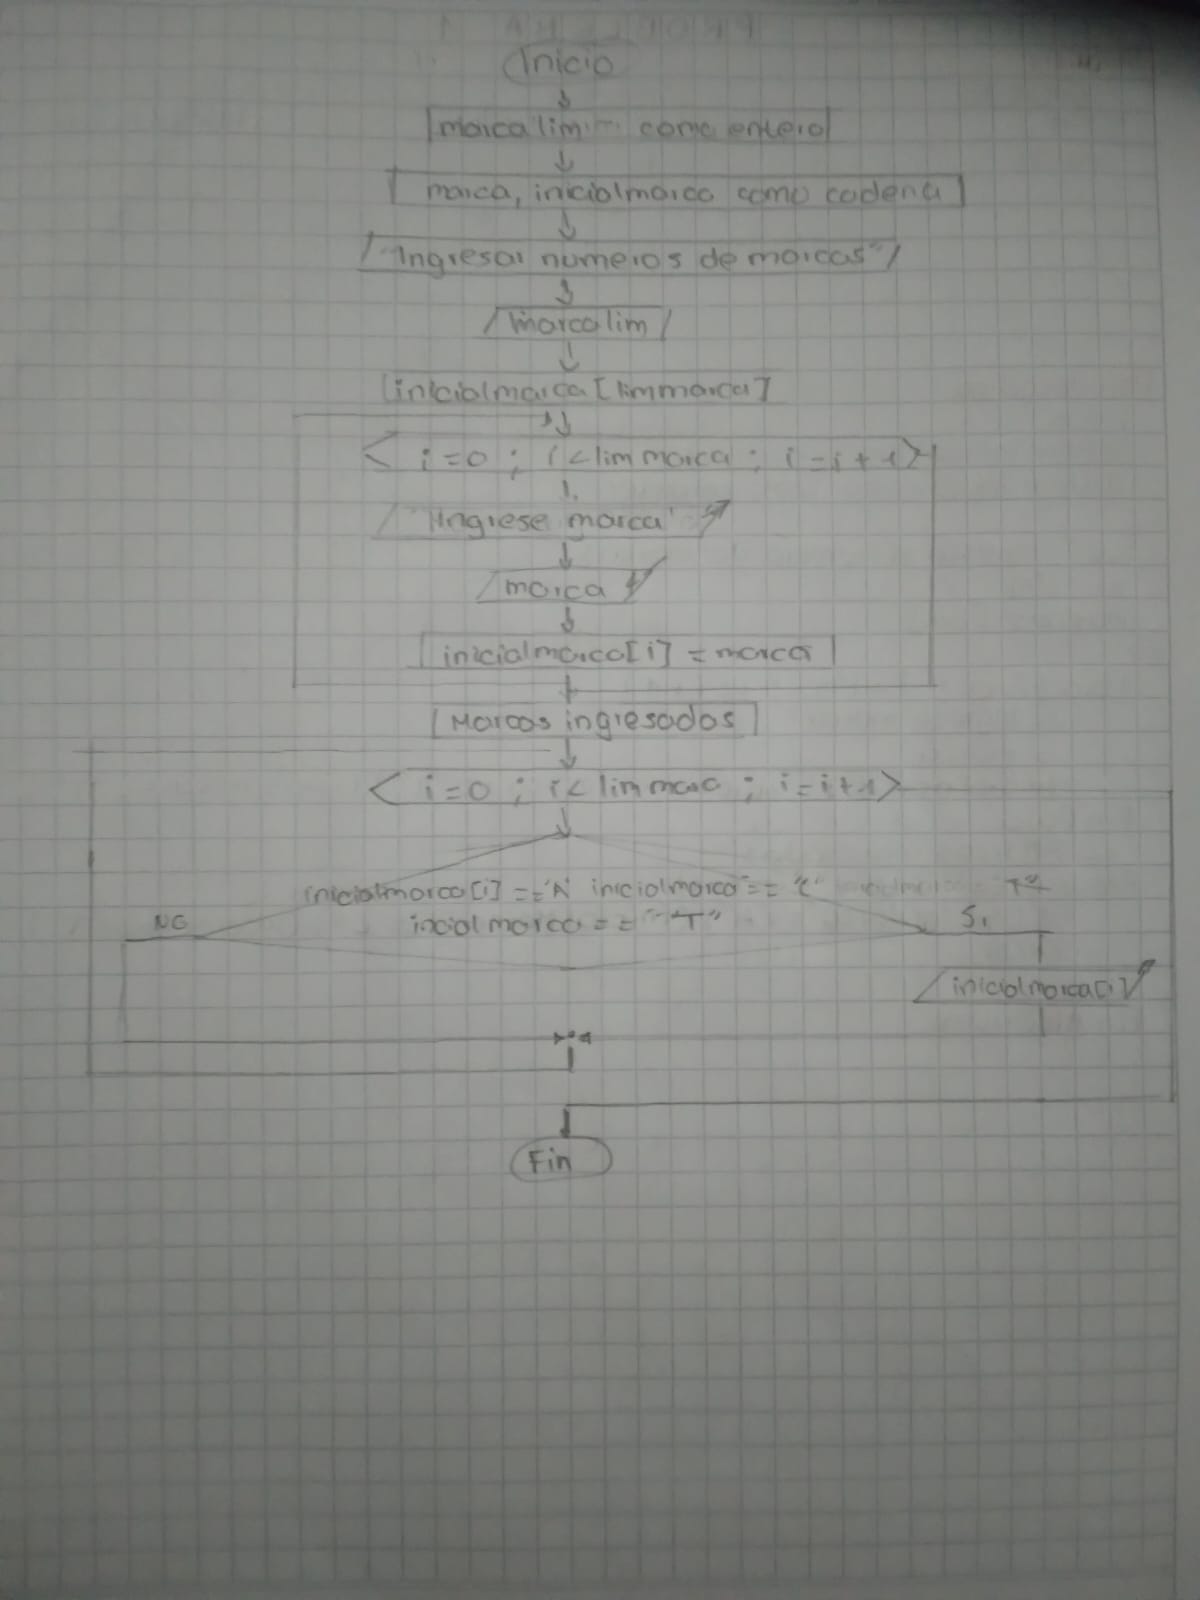 Inicio
marca lim como entero
marca, inicialmarca como cadena
"Ingresar numeros de marcas"
marcalim
inicialmarca[limmarca]
i=0 ; i<limmarca ; i=i+1
"Ingrese marca"
marca
inicialmarca[i] = marca
Marcas ingresadas
i=0 ; i< limmarc ; i=i+1
inicialmarca[i] =='A' inicialmarca== "C"
NO
incialmarca== "T"
Si
inicialmarca[i]
Fin